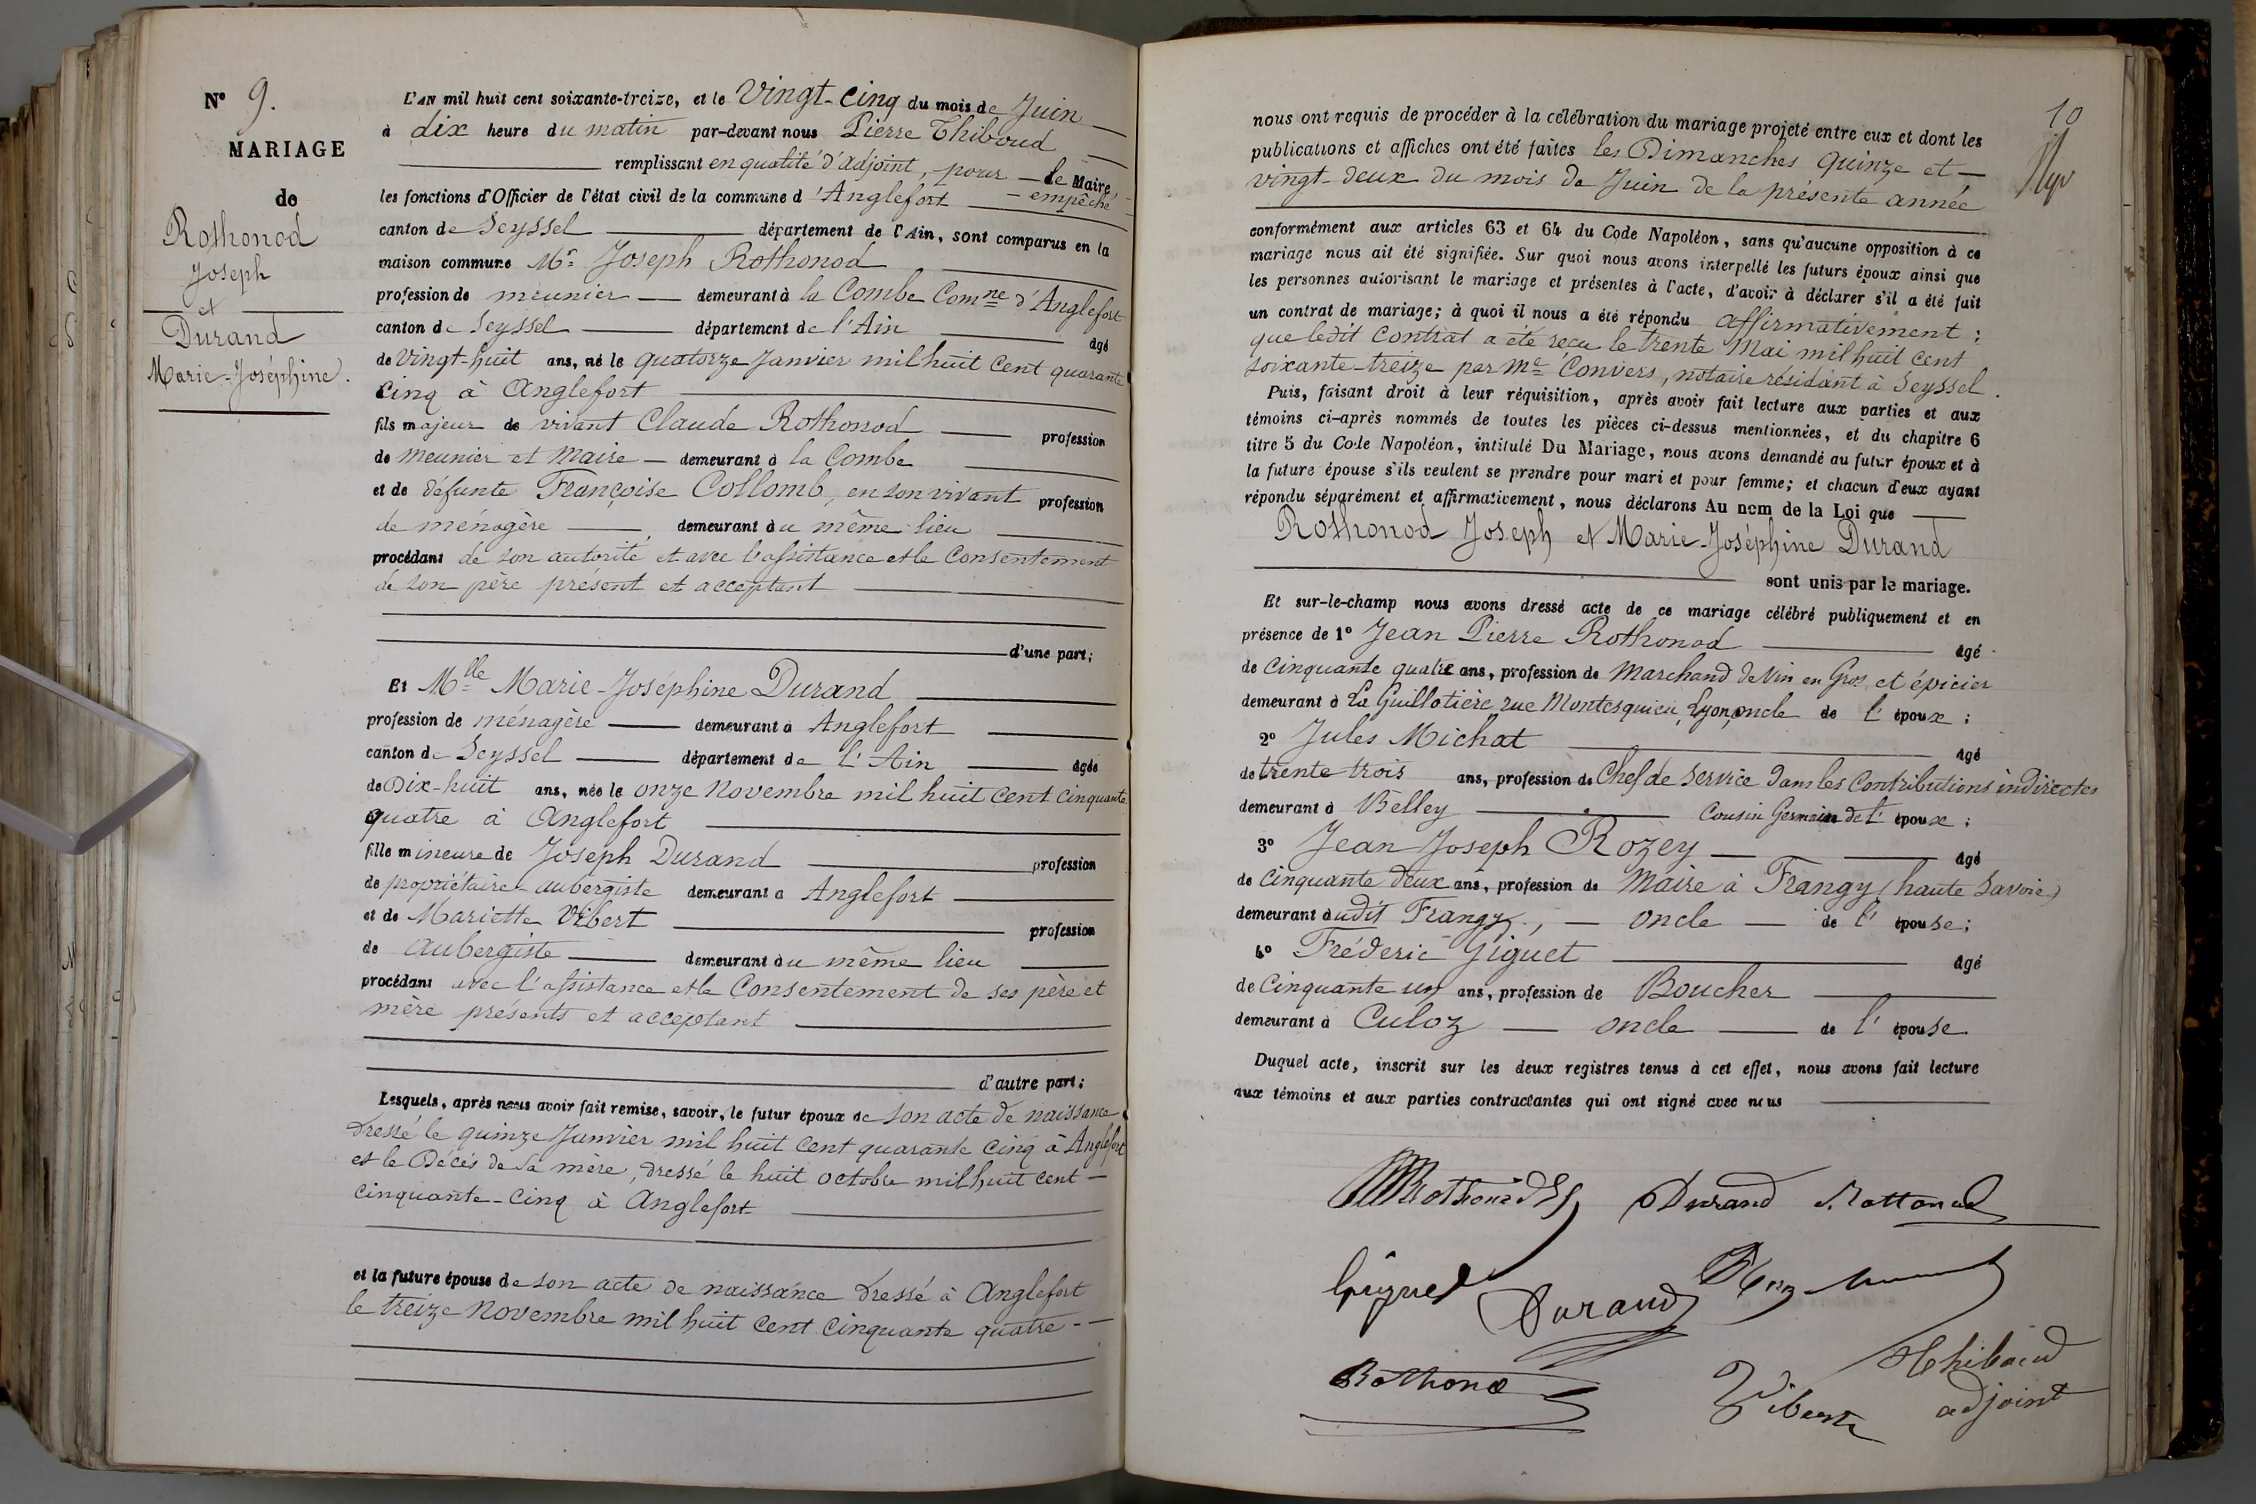 N° 9.
MARIAGE
de
Rothonod
Joseph
et
Durand
Marie-Joséphine.
L'AN mil huit cent soixante-treize, et le Vingt-Cinq du mois de Juin
à dix heure du matin par-devant nous Pierre Thiboud
remplissant en qualité d'adjoint, pour le Maire
empêché
les fonctions d'Officier de l'état civil de la commune d'Anglefort
canton de Seyssel département de l'Ain, sont comparus en la
maison commune Mr Joseph Rothonod
profession de meunier demeurant à la Combe Comne d'Anglefort
canton de Seyssel département de l'Ain âgé
de Vingt-huit ans, né le quatorze Janvier mil huit Cent quarante
Cinq à Anglefort
fils majeur de vivant Claude Rothonod profession
de meunier et Maire demeurant à la Combe
et de défunte Françoise Collomb, en son vivant profession
de ménagère demeurant du même lieu
procédant de son autorité et avec l'assistance et le Consentement
de son père présent et acceptant
d'une part;
Et Mlle Marie-Joséphine Durand
profession de ménagère demeurant à Anglefort
canton de Seyssel département de l'Ain âgée
de Dix-huit ans, née le onze Novembre mil huit Cent Cinquante
quatre à Anglefort
fille mineure de Joseph Durand profession
de propriétaire-aubergiste demeurant à Anglefort
et de Mariette Vibert profession
de aubergiste demeurant du même lieu
procédant avec l'assistance et le Consentement de ses père et
mère présents et acceptant
d'autre part;
Lesquels, après nous avoir fait remise, savoir, le futur époux de son acte de naissance
dressé le quinze Janvier mil huit Cent quarante cinq à Anglefort
et le Décés de sa mère, dressé le huit octobre mil huit cent
cinquante-cinq à Anglefort
et la future épouse de son acte de naissance dressé à Anglefort
le treize Novembre mil huit Cent Cinquante quatre
10
nous ont requis de procéder à la célébration du mariage projeté entre eux et dont les
publications et affiches ont été faites les Dimanches quinze et
vingt-deux du mois de Juin de la présente année
conformément aux articles 63 et 64 du Code Napoléon, sans qu'aucune opposition à ce
mariage nous ait été signifiée. Sur quoi nous avons interpellé les futurs époux ainsi que
les personnes autorisant le mariage et présentes à l'acte, d'avoir à déclarer s'il a été fait
un contrat de mariage; à quoi il nous a été répondu affirmativement;
que ledit Contrat a été reçu le trente Mai mil huit Cent
soixante-treize par Me Convers, notaire résidant à Seyssel.
Puis, faisant droit à leur réquisition, après avoir fait lecture aux parties et aux
témoins ci-après nommés de toutes les pièces ci-dessus mentionnées, et du chapitre 6
titre 5 du Code Napoléon, intitulé Du Mariage, nous avons demandé au futur époux et à
la future épouse s'ils veulent se prendre pour mari et pour femme; et chacun d'eux ayant
répondu séparément et affirmativement, nous déclarons Au nom de la Loi que
Rothonod Joseph et Marie-Joséphine Durand
sont unis par le mariage.
Et sur-le-champ nous avons dressé acte de ce mariage célébré publiquement et en
présence de 1° Jean Pierre Rothonod âgé
de Cinquante quatre ans, profession de Marchand de Vin en Gros et épicier
demeurant à La Guillotière, rue Montesquieu, Lyon, oncle de l'époux;
2° Jules Michat âgé
de trente trois ans, profession de Chef de service dans les Contributions indirectes
demeurant à Belley Cousin Germain de l'époux;
3° Jean Joseph Rozey âgé
de Cinquante deux ans, profession de Maire à Frangy (haute Savoie)
demeurant audit Frangy, oncle de l'épouse;
4° Fréderic Giguet âgé
de Cinquante un ans, profession de Boucher
demeurant à Culoz oncle de l'épouse
Duquel acte, inscrit sur les deux registres tenus à cet effet, nous avons fait lecture
aux témoins et aux parties contractantes qui ont signé avec nous
Durand
Giguet
Durand
Rothonod
Vibert
Thiboud
adjoint